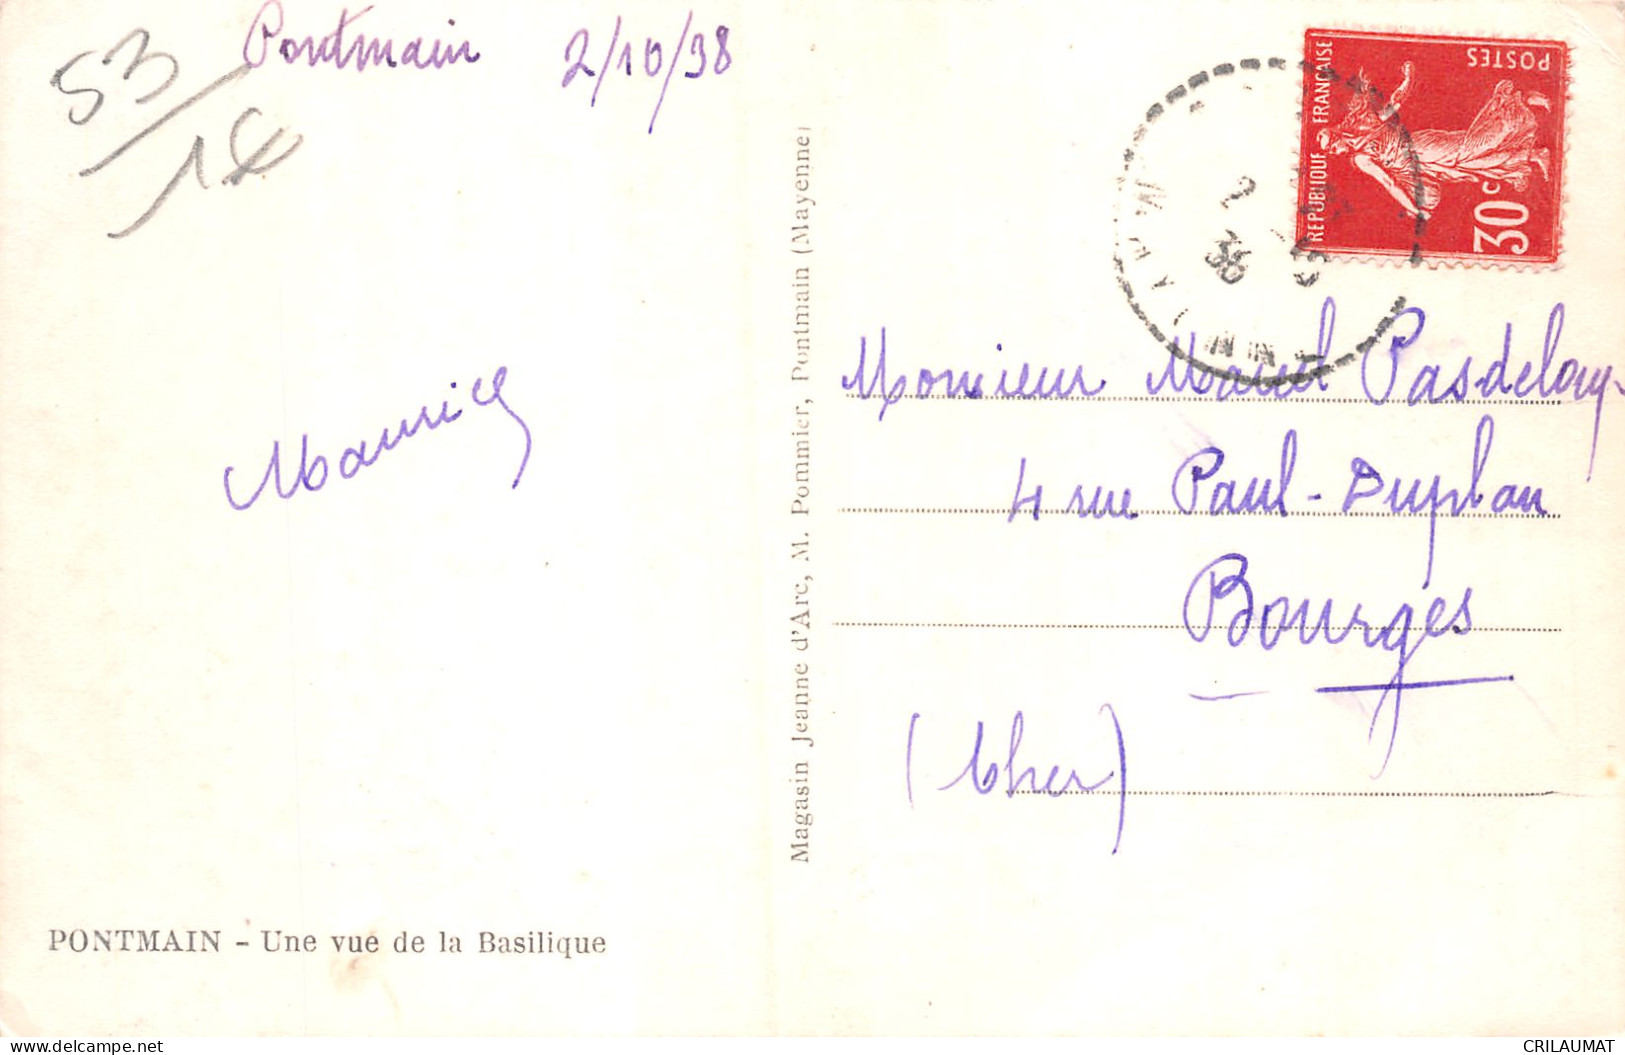 53/
Pontmain 2/10/38
Maurice
PONTMAIN - Une vue de la Basilique
Magasin Jeanne d'Arc, M. Pommier, Pontmain (Mayenne)
POSTES
REPUBLIQUE FRANÇAISE
30c
2
38
Monsieur Marcel Pasdeloup
4 rue Paul-Duplan
Bourges
(Cher)
CRILAUMAT